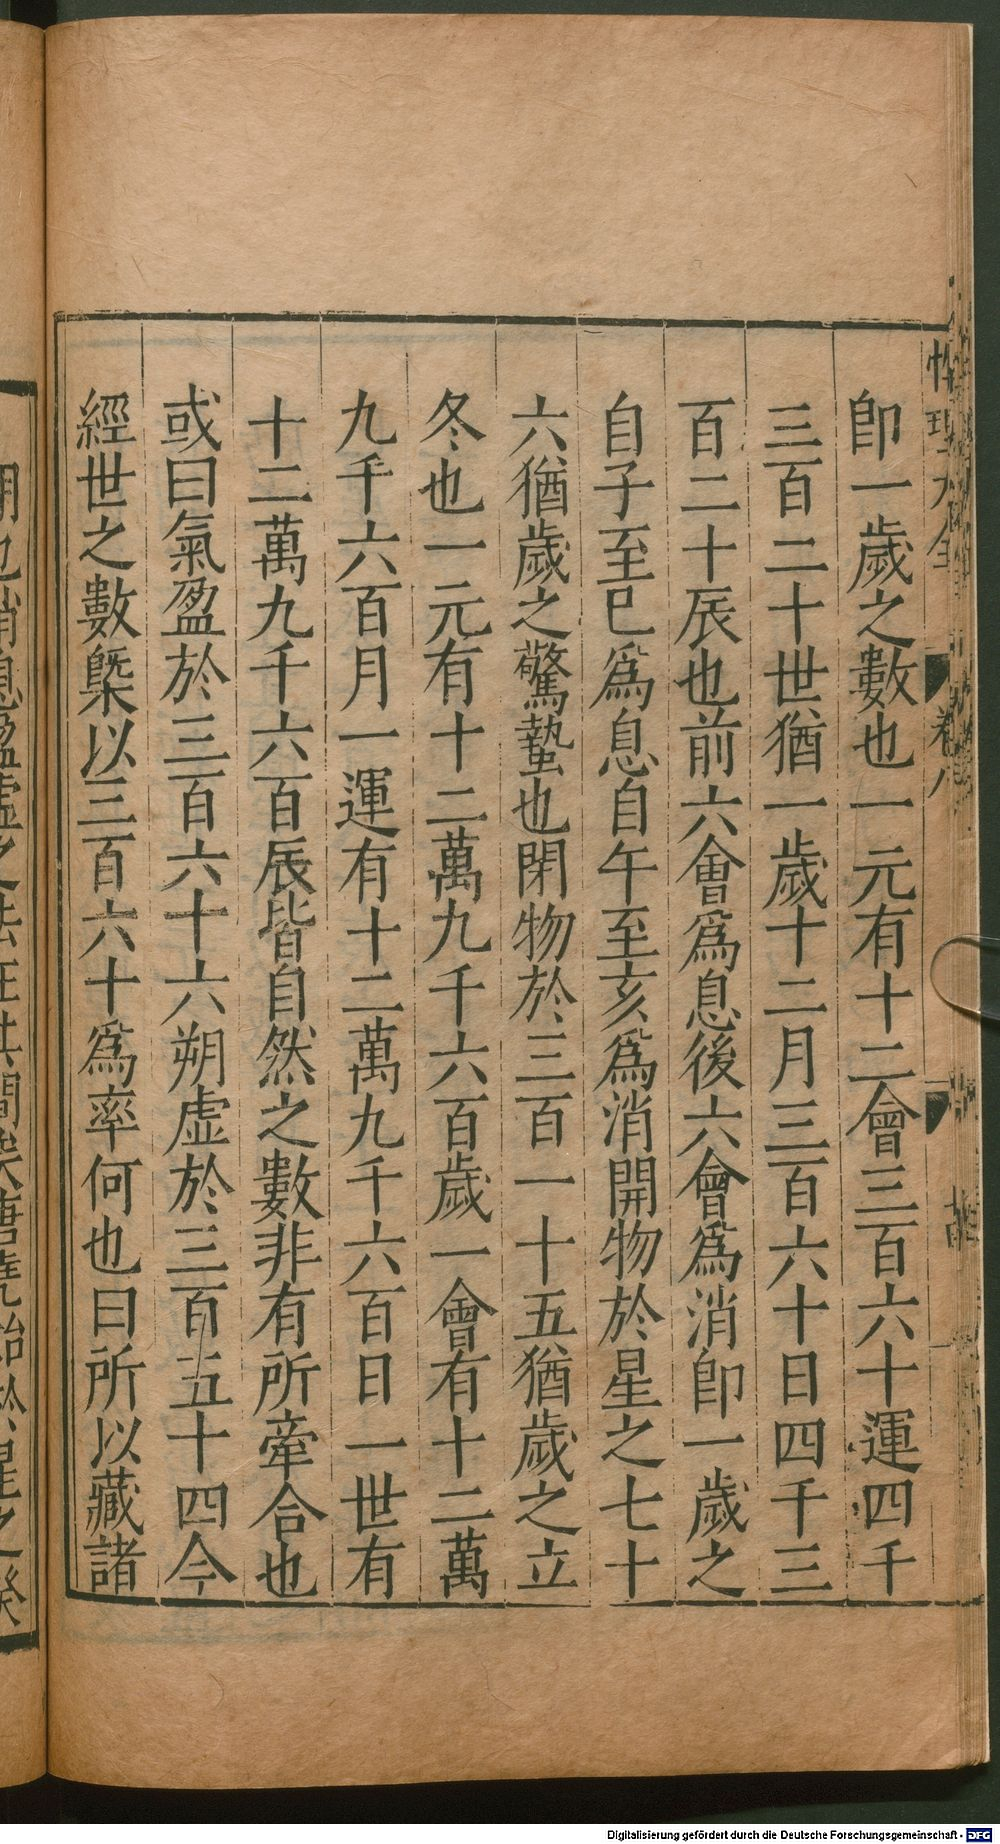 性理大全 卷八
即一歲之數也一元有十二會三百六十運四千
三百二十世猶一歲十二月三百六十日四千三
百二十辰也前六會爲息後六會爲消即一歲之
自子至巳爲息自午至亥爲消開物於星之七十
六猶歲之驚蟄也閉物於三百一十五猶歲之立
冬也一元有十二萬九千六百歲一會有十二萬
九千六百月一運有十二萬九千六百日一世有
十二萬九千六百辰皆自然之數非有所牽合也
或曰氣盈於三百六十六朔虛於三百五十四今
經世之數槩以三百六十爲率何也曰所以藏諸
Digitalisierung gefördert durch die Deutsche Forschungsgemeinschaft - DFG